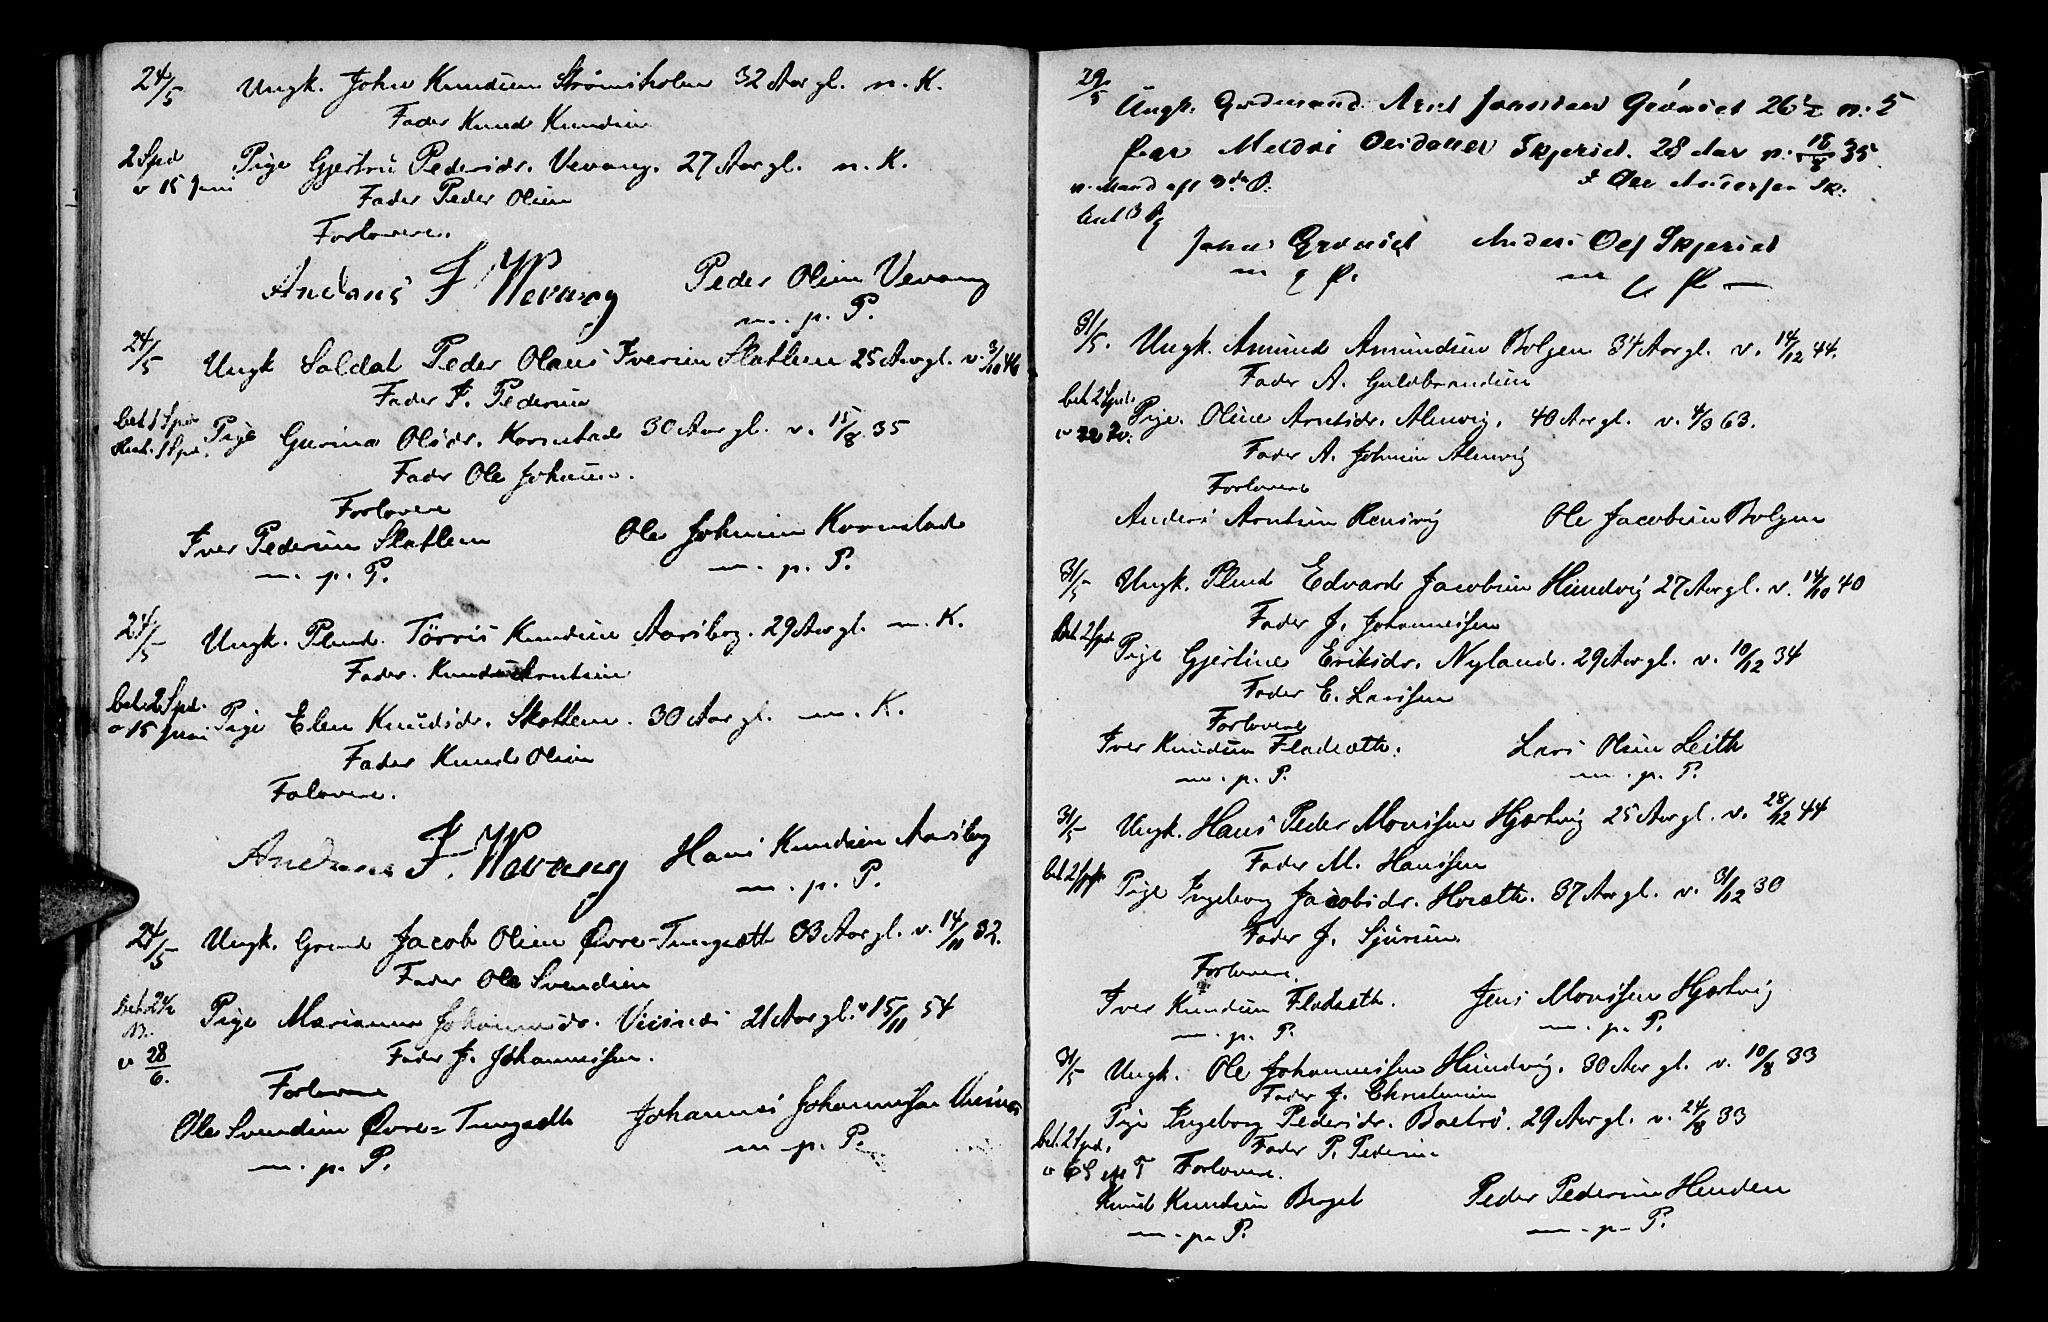 24/5 Ungk. John Knudsen Strømsholm 32 Aar gl. n. K.
Fader Knud Knudsen
2 Spd Pige Gjertru Pedersdr. Vevang. 27 Aar gl. n. K.
v 15 Juni
Fader Peder Olsen
Forlovere.
Andreas I Wevang Peder Olsen Vevang
m. p. P.
24/5 Ungk Soldat Peder Olaus Iversen Slatlem 25 Aar gl. v. 3/10 46
Fader I. Pedersen
bet 1 Spd Pige Gurina Olsdr. Kornstad 30 Aar gl. v. 15/8 35
Rest. 1 Spd.
Fader Ole Johansen.
Forlovere
Iver Pedersen Slatlem Ole Johnsen Kornstad
m. p. P. m. p. P.
24/5 Ungk. Plmd. Törris Knudsen Aarsbog. 29 Aar gl. m. K.
Fader. Knud Arntsen
bet. 2 Spd. Pige Elen Knudsdr. Skottem. 30 Aar gl. m. K.
v 15 Juni
Fader Knud Olsen
Folovere.
Andreas I. Wevang Hans Knudsen Aarsbog
m. p. P.
24/5 Ungk. Grmd Jacob Olsen Øvre-Tungsæth 33 Aar gl. v. 14/11 32.
Fader Ole Svendsen
bet. 2
Pige Marianne Johannesdr. Vicinæs 21 Aar gl. v 15/11 54
v 28/6.
Fader J. Johannessen.
Forlovere
Ole Svendsen Øvre=Tungsæth Johannes Johannessen
m. p. P. m. p. P.
29/5
Ungk. Arnt Grönset 26 1/2 n. 5
Skjerset. 28 Aar v. 18/8 35
Ole Andersen Sk.
Grönset Anders Olsen Skjerset
31/5. Ungk. Amund Amundsen Bolgen 34 Aar gl. v. 14/12 44.
Fader A. Guldbrandsen
bet 2 Spd. Pige. Oline Arntsdr. Alnvig. 40 Aar gl. v. 4/3 63.
Fader A. Johnsen Alnvig
Forlovere
Anders Arntsen Rensvig Ole Jacobsen Bolgen
31/5 Ungk. Plmd Edvard Jacobsen Hundvig 27 Aar gl. v. 14/10 40
Fader J. Johannessen
Bet 2 Spd Pige Gjertine Eriksdr. Nyland. 29 Aar gl. v. 10/12 34
Fader E. Larssen
Forlovere
Iver Knudsen Fladsæth. Lars Olsen Leith
m. p. P. m. p. P.
31/5 Ungk. Hans Peder Monssen Hjertvig 25 Aar gl. v. 28/12 44
Fader M. Hanssen
bet. 2 Spd Pige Ingeborg Jacobsdr. Hosæth. 37 Aar gl. v. 31/12 30
Fader J. Sjursen.
Forlovere.
Iver Knudsen Fladsæth. Jens Monssen Hjertvig
m. p. P. m. p. P.
31/5 Ungk. Ole Johannessen Hundvig. 30 Aar gl. v. 10/8 33
Fader J. Christensen
Pige Ingeborg Pedersdr. Boelsö. 29 Aar gl. v. 24/8 33
bet. 2 Spd. Fader P. Pedersen
v 6 S e T Forlovere.
Knud Knudsen Peder Pedersen Henden
m. p. P. m. p. P.